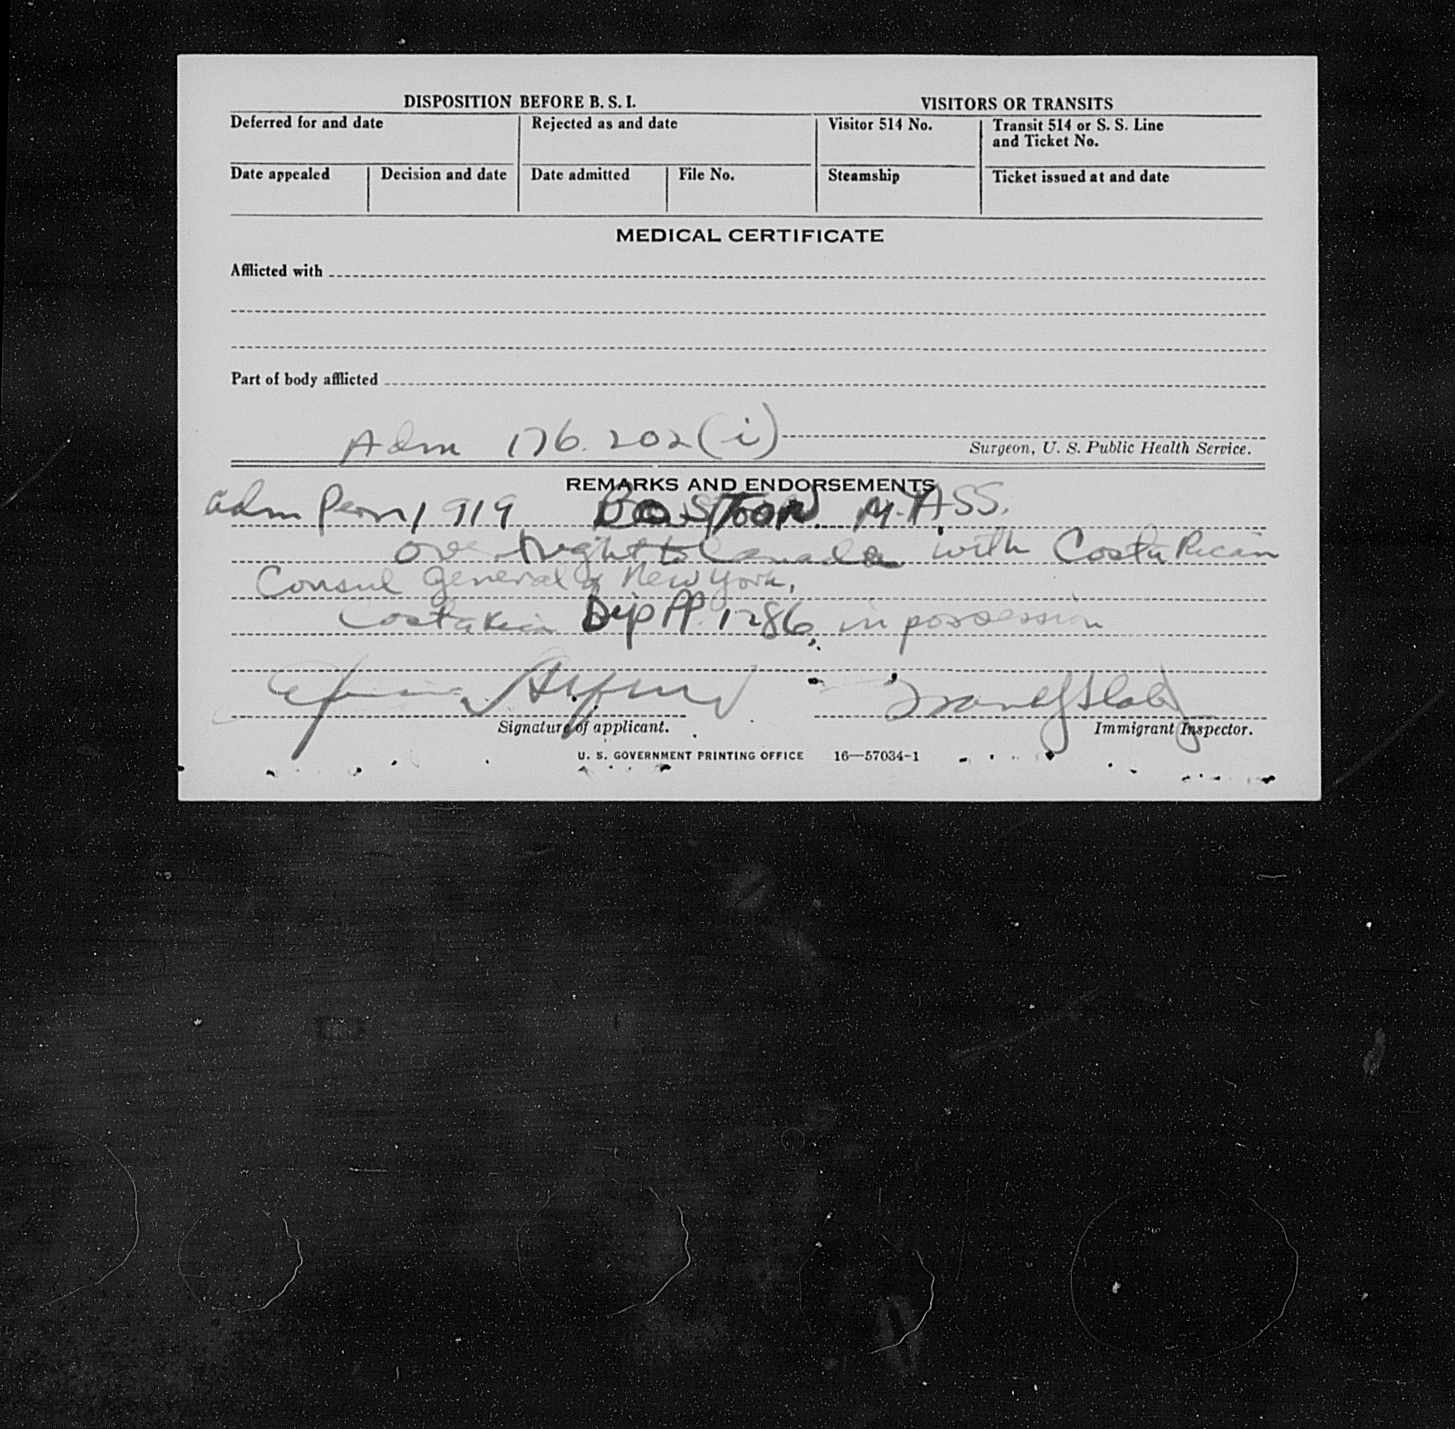 DISPOSITION BEFORE B. S. I. VISITORS OR TRANSITS
Deferred for and date Rejected as and date Visitor 514 No. Transit 514 or S. S. Line and Ticket No.
Date appealed Decision and date Date admitted File No. Steamship Ticket issued at and date
MEDICAL CERTIFICATE
Afflicted with
Part of body afflicted
Adm 176.202(i)
Surgeon, U. S. Public Health Service.
REMARKS AND ENDORSEMENTS
adm Perm 1919 BOSTON MASS.
overnight to Canada with Costa Rican
Consul General of New York.
Costa Rican Dip PP. 1286, in possession
Signature of applicant. Immigrant Inspector.
U. S. GOVERNMENT PRINTING OFFICE 16—57034-1